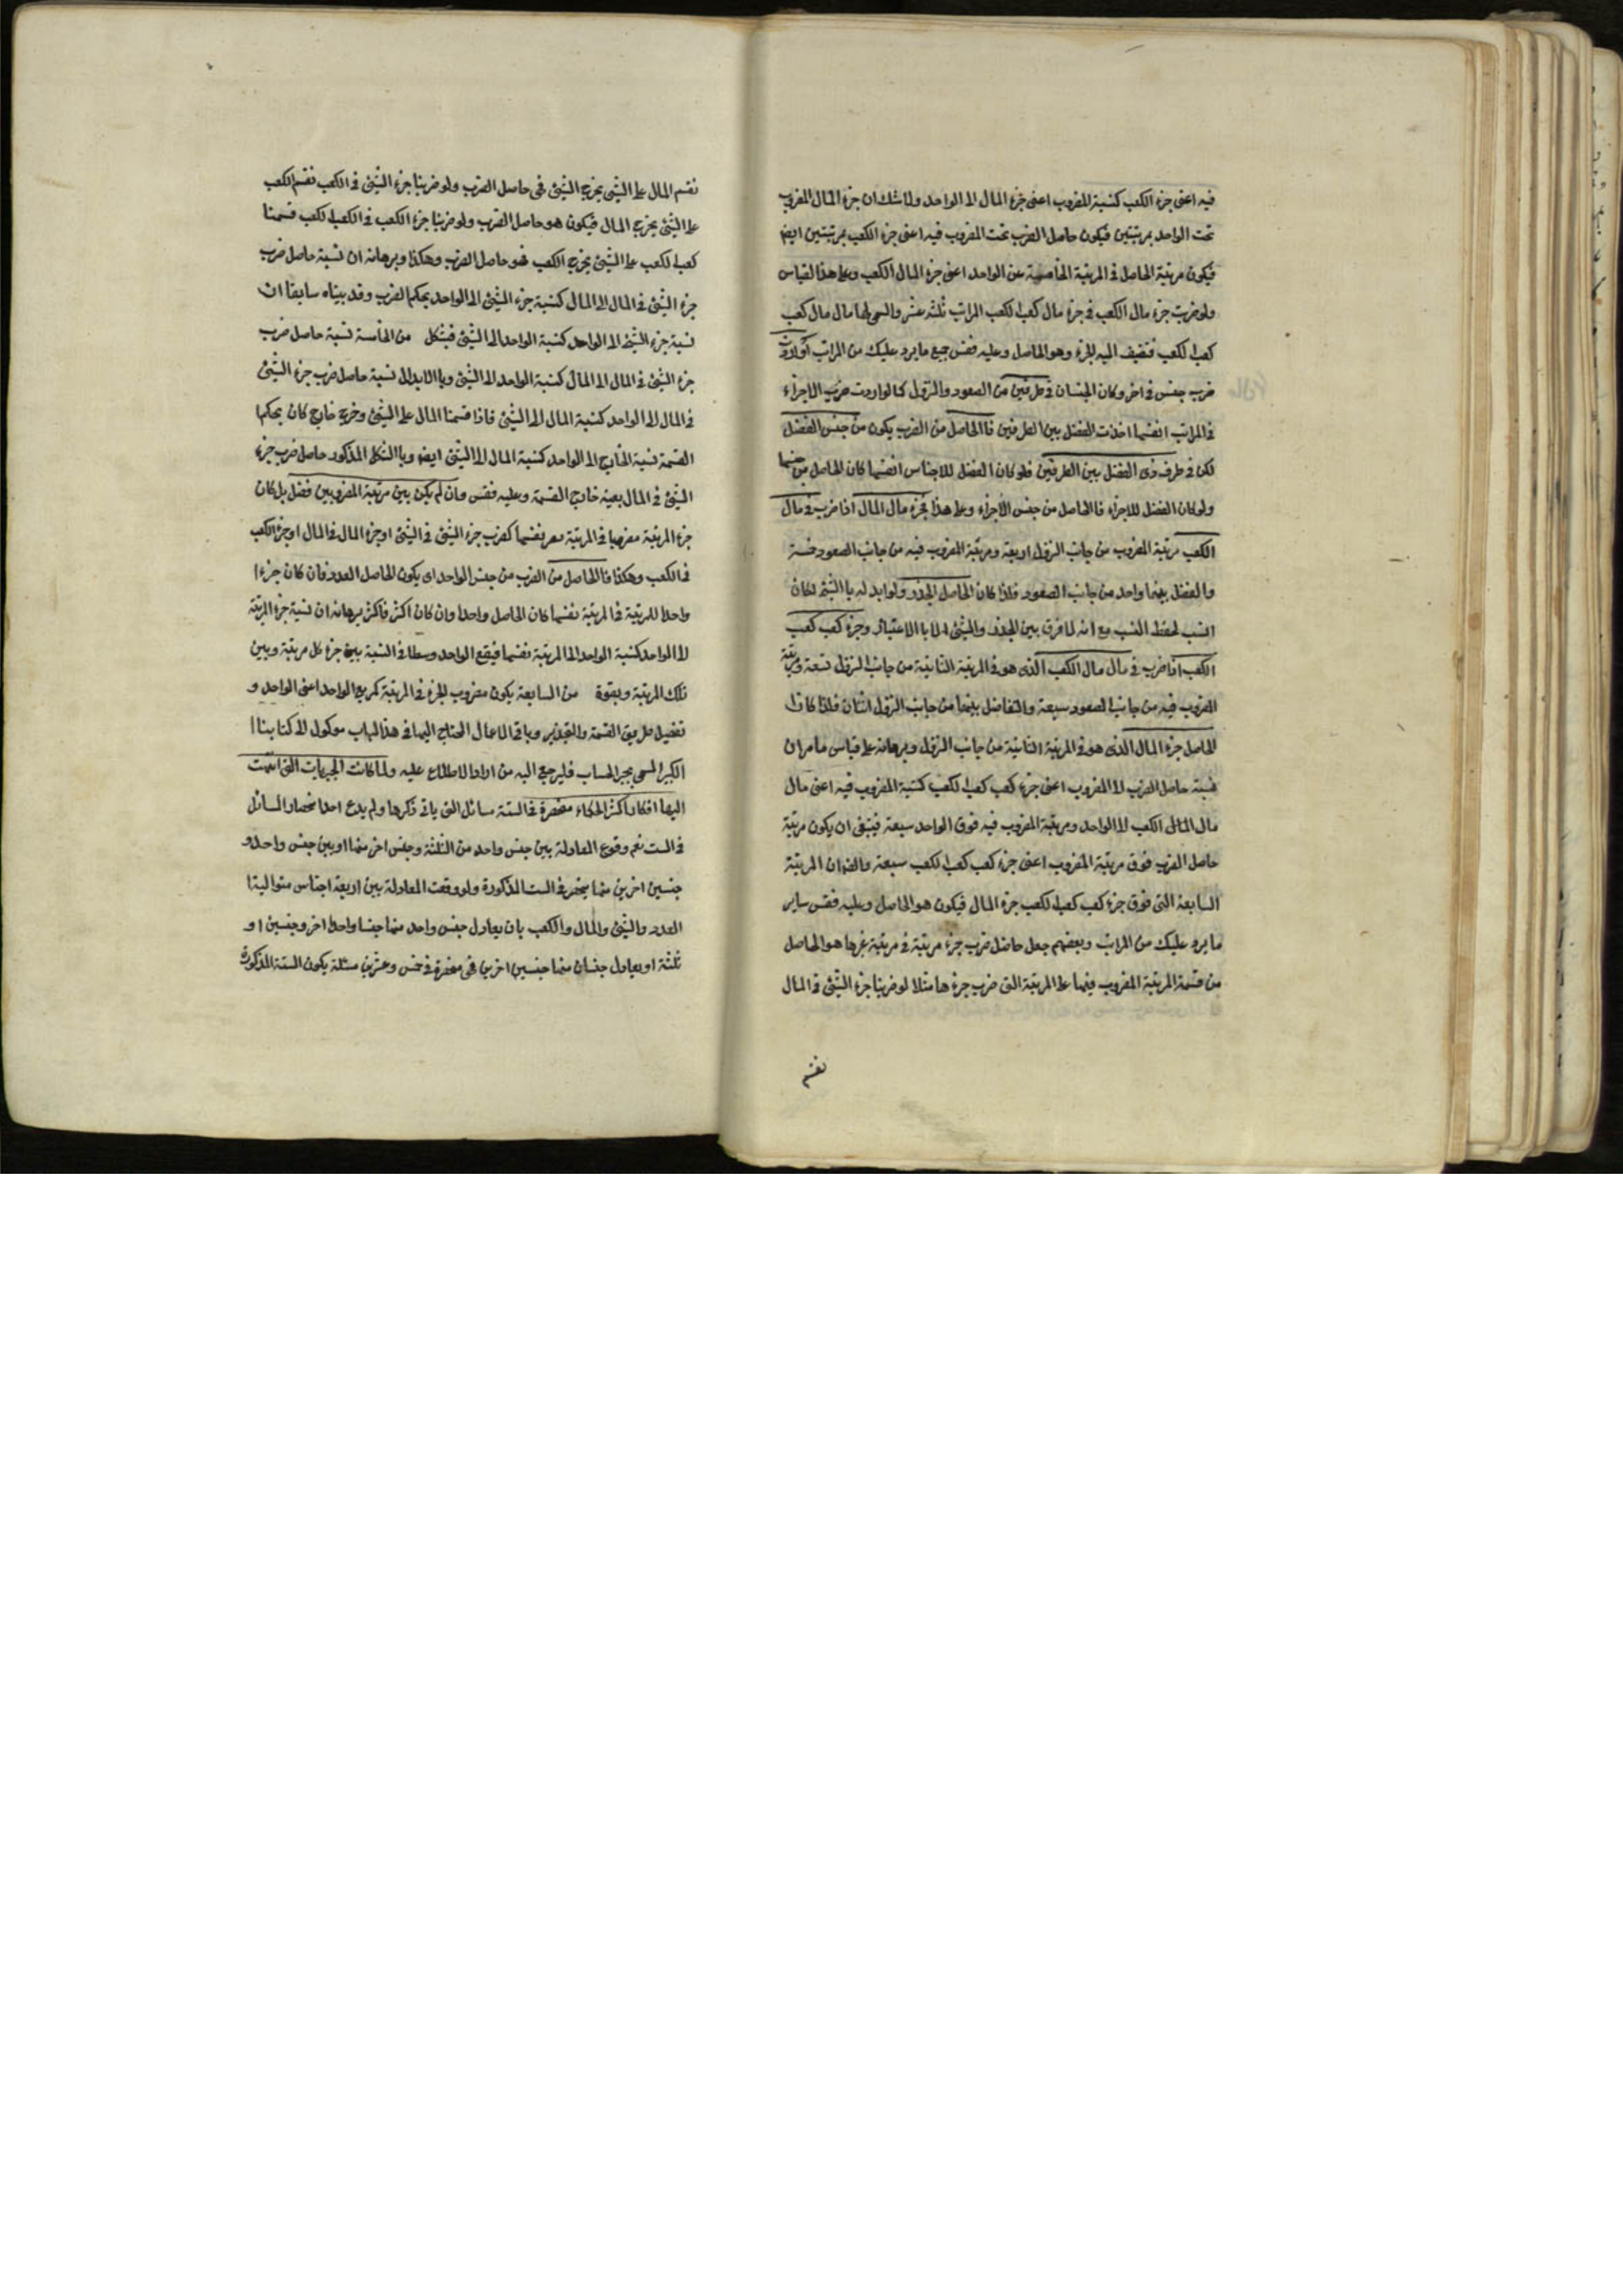 فيه اعنى جزء الكعب كنسبة المضروب اعنى جزء المال الى الواحد ولا شك ان جزء المال المضروب
تحت الواحد بمرتبتين فيكون حاصل الضرب تحت المضروب فيه اعنى جزء الكعب بمرتبتين ايضا
فيكون مرتبة الحاصل فى المرتبة الخامسة عن الواحد اعنى جزء المال الكعب وعلى هذا القياس
ولو ضربت جزء مال الكعب فى جزء مال كعب الكعب المراتب ثلثة عشر والسمى لها مال مال كعب
كعب الكعب فتضيف اليه الجزء وهو الحاصل وعليه فقس جميع ما يرد عليك من المراتب ولو اردت
ضرب جنس فى اخر وكان الجنسان فى طرفين من الصعود والنزول كما لو اردت ضرب الاجزاء
فى المراتب انفسها اخذت الفضل بين الطرفين فاالحاصل من الضرب يكون من جنس الفضل
لكن فى طرف ذى الفضل بين الطرفين فلو كان الفضل للاجناس انفسها كان الحاصل من جنسها
ولو كان الفضل للاجزاء فاالحاصل من جنس الاجزاء وعلى هذا فجزء مال المال اذا ضرب فى مال
الكعب مرتبة المضروب من جانب النزول اربعة ومرتبة المضروب فيه من جانب الصعود خمسة
والفضل بينهما واحد من جانب الصعود فلذا كان الحاصل الجذر ولو ابدله باالشئ لكان
انسب لحفظ النسب مع انه لا فرق بين الجذر والشئ الا باالاعتبار وجزء كعب كعب
الكعب اذا ضرب فى مال مال الكعب الذى هو فى المرتبة الثانية من جانب النزول تسعة ومرتبة
المضروب فيه من جانب الصعود سبعة والتفاضل بينهما من جانب النزول اثنان فلذا كان ا
الحاصل جزء المال الذى هو فى المرتبة الثانية من جانب النزول وبرهانه على قياس ما مر ان
نسبة حاصل الضرب الى المضروب اعنى جزء كعب كعب الكعب كنسبة المضروب فيه اعنى مال
مال المال الكعب الى الواحد ومرتبة المضروب فيه فوق الواحد سبعة فينبغى ان يكون مرتبة
حاصل الضرب فوق مرتبة المضروب اعنى جزء كعب كعب الكعب سبعة والضمان المرتبة
السابعة التى فوق جزء كعب كعب الكعب جزء المال فيكون هو الحاصل وعليه فقس ساير
ما يرد عليك من المراتب وبعضهم جعل حاصل ضرب جزء مرتبة فى مرتبة غرها هو الحاصل
من قسمة المرتبة المضروب فيها على المرتبة التى ضرب جزءها مثلا لو ضربنا جزء الشئ فى المال
نقسم
نقسم المال على الشئ يخرج الشئ فى حاصل الضرب ولو ضربنا جزء الشئ فى الكعب نقسم الكعب
على الشئ يخرج المال فيكون هو حاصل الضرب ولو ضربنا جزء الكعب فى الكعب الكعب قسمنا
كعب الكعب على الشئ يخرج الكعب فهو حاصل الضرب وهكذا وبرهانه ان نسبة حاصل ضرب
جزء الشئ فى المال الى المال كنسبة جزء الشئ الى الواحد بحكم الضرب وقد بيناه سابقا ان
نسبة جزء الشئ الى الواحد كنسبة الواحد الى الشئ فبشكل من الخامسة نسبة حاصل ضرب
جزء الشئ فى المال الى المال كنسبة الواحد الى الشئ وباالابدال نسبة حاصل ضرب جزء الشئ
فى المال الى الواحد كنسبة المال الى الشئ فاذا قسمنا المال على الشئ وخرج خارج كان بحكم ا
القسمة نسبة الخارج الى الواحد كنسبة المال الى الشئ ايضا وباالشكل المذكور حاصل ضرب جزء
الشئ فى المال بعينه خارج القسمة وعليه فقس وان لم يكن بين مرتبة المضروبين فضل بل كان
جزء المرتبة مضروبا فى المرتبة نفسها كضرب جزء الشئ فى الشئ او جزء المال فى المال او جزء الكعب
فى الكعب وهكذا فاالحاصل من الضرب من جنس الواحد اى يكون الحاصل العدد فان كان جزء ا
واحدا للمرتبة فى المرتبة نفسها كان الحاصل واحدا وان كان اكثر فاكثر برهانه ان نسبة جزء المرتبة
الى الواحد كنسبة الواحد الى المرتبة نفسها فيقع الواحد وسطا فى النسبة بين جزء كل مرتبة وبين
تلك المرتبة وبقوة من السابعة يكون مضروب الجزء فى المرتبة كمربع الواحد اعنى الواحد و
تفصيل طريق القسمة والتجذير وباقى الاعمال المحتاج اليها فى هذا الباب موكول الى كتابنا ا
الكبير المسمى ببحر الحساب فليرجع اليه من اراد الاطلاع عليه ولما كانت الجبريات التى انتهت
اليها افكار اكثر الحكماء منحصرة فى الستة مسائل التى ياتى ذكرها ولم يدع احد انحصار المسائل
فى الست نعم وقوع المعادلة بين جنس واحد من الثلثة وجنس اخر منها او بين جنس واحد و
جنسين اخرين منها ينحصر فى الست المذكورة ولو وقعت المعادلة بين اربعة اجناس متوالية ا
العدد والشئ والمال والكعب بان يعادل جنس واحد منها جنسا واحدا اخر وجنسين او
ثلثة او يعادل جنسان منها جنسين اخرين فهى منحصرة فى خمس وعشرين مسئلة يكون الستة المذكورة